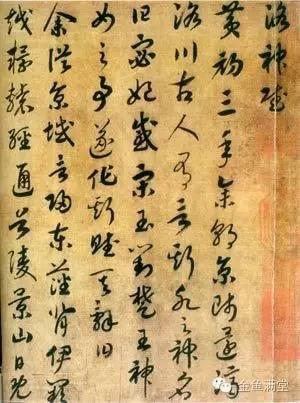 洛神賦
黄初三年余朝京師還濟
洛川古人有言斯水之神名
曰宓妃感宋玉對楚王神
女之事遂作斯賦其辭曰
余從京域言歸東藩背伊闕
越轘轅經通谷陵景山日既
金鱼满堂